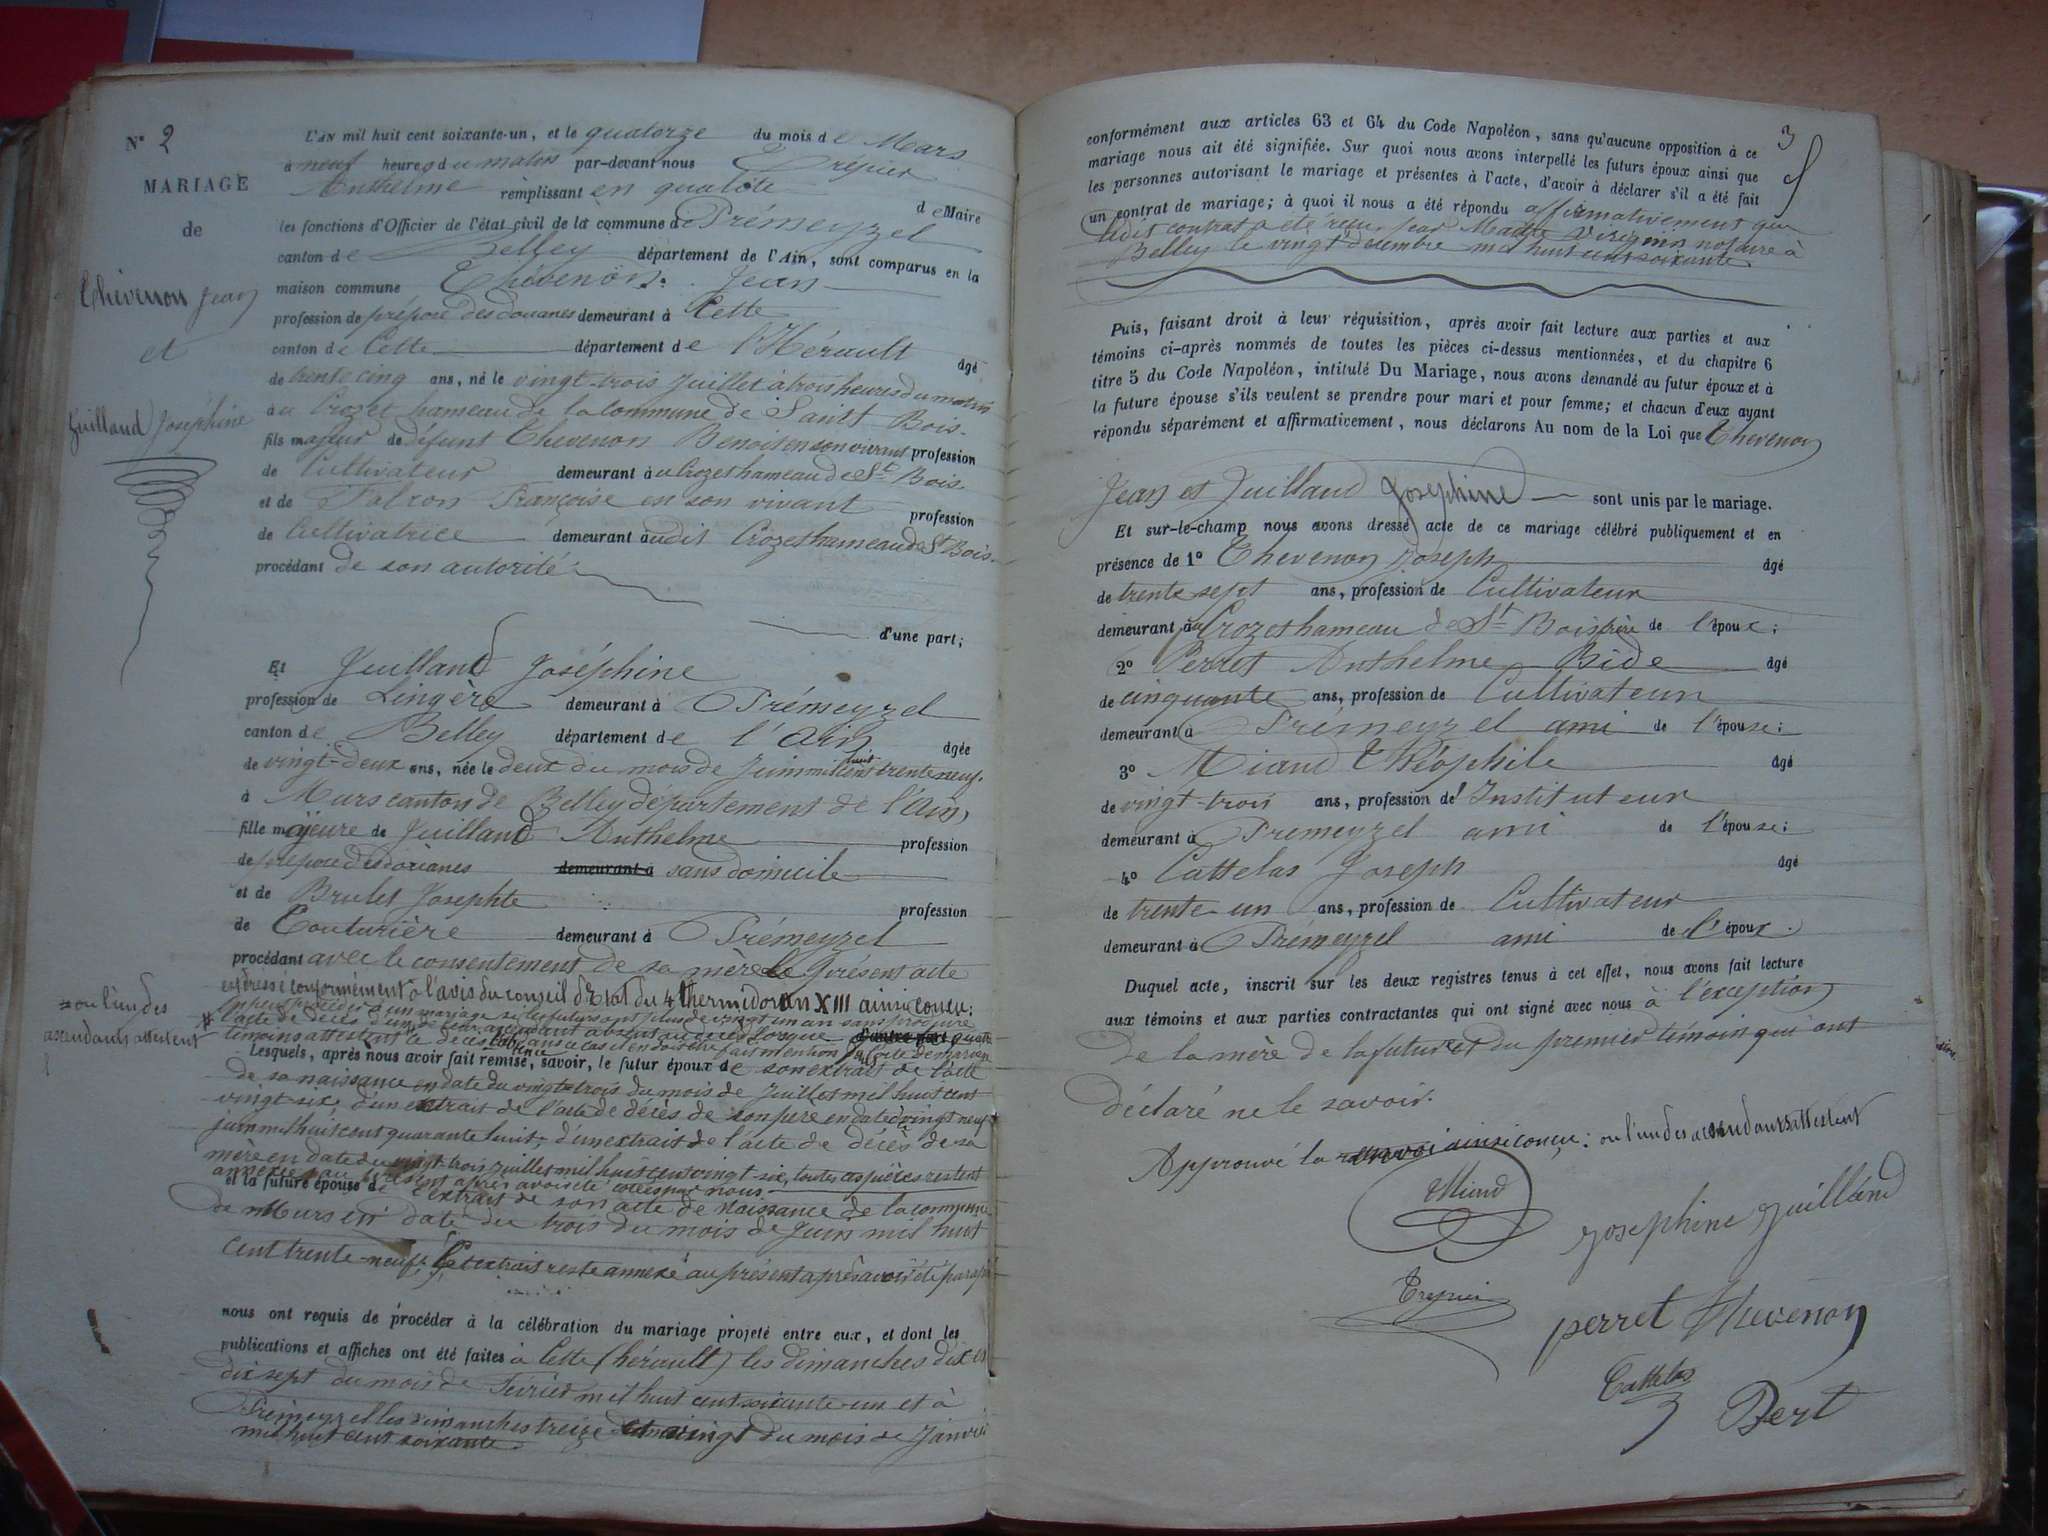 N° 2
MARIAGE
de
Chevenon Jean
et
Juilland Joséphine
L'AN mil huit cent soixante-un, et le quatorze du mois de Mars
à neuf heures du matin par-devant nous Trepier
Anthelme remplissant en qualité de Maire
les fonctions d'Officier de l'état civil de la commune de Prémeyzel
canton de Belley département de l'Ain, sont comparus en la
maison commune Chévenon Jean
profession de préposé des douanes demeurant à Cette
canton de Cette département de l'Hérault âgé
de trente cinq ans, né le vingt-trois Juillet à trois heures du matin
à u Crozet hameau de la Commune de Saint Bois
fils majeur de défunt Chevenon Benoit en son vivant profession
de Cultivateur demeurant à u Crozet hameau de St Bois
et de Falcon Françoise en son vivant profession
de Cultivatrice demeurant audit Crozet hameau de St Bois
procédant de son autorité
d'une part;
Et Juilland Joséphine
profession de Lingère demeurant à Prémeyzel
canton de Belley département de l'Ain âgée
de vingt-deux ans, née le deux du mois de Juin mil huit cent trente neuf
à Murs canton de Belley département de l'Ain
fille majeure de Juilland Anthelme profession
de préposé des douanes demeurant à sans domicile
et de Brulet Josephte profession
de Couturière demeurant à Prémeyzel
procédant avec le consentement de sa mère le présent acte
est dressé conformément à l'avis du conseil d'Etat du 4 thermidor an XIII ainsi concu:
ou l'un des
ascendants attestent
l'acte de décès
témoins attestent le décès
Lesquels, après nous avoir fait remise, savoir, le futur époux de son extrait de l'acte
de sa naissance en date du vingt-trois du mois de Juillet mil huit cent
vingt-six, d'un extrait de l'acte de décès de son père en date vingt neuf
juin mil huit cent quarante huit, d'un extrait de l'acte de décès de sa
mère en date du vingt-trois juillet mil huit cent vingt-six, toutes ces pièces restent
après avoir été cotées par nous
et la future épouse de l'extrait de son acte de Naissance de la commune
de Murs en date du trois du mois de Juin mil huit
cent trente-neuf, Cet extrait reste annexé au présent après avoir été paraphé
nous ont requis de procéder à la célébration du mariage projeté entre eux, et dont les
publications et affiches ont été faites à Cette (hérault) les dimanches dix et
dix sept du mois de Février mil huit cent soixante un et à
Prémeyzel les dimanches treize et vingt du mois de Janvier
mil huit cent soixante
3
conformément aux articles 63 et 64 du Code Napoléon, sans qu'aucune opposition à ce
mariage nous ait été signifiée. Sur quoi nous avons interpellé les futurs époux ainsi que
les personnes autorisant le mariage et présentes à l'acte, d'avoir à déclarer s'il a été fait
un contrat de mariage; à quoi il nous a été répondu affirmativement que
ledit contrat a été reçu par Maître notaire à
Belley le vingt décembre mil huit cent soixante
Puis, faisant droit à leur réquisition, après avoir fait lecture aux parties et aux
témoins ci-après nommés de toutes les pièces ci-dessus mentionnées, et du chapitre 6
titre 5 du Code Napoléon, intitulé Du Mariage, nous avons demandé au futur époux et à
la future épouse s'ils veulent se prendre pour mari et pour femme; et chacun d'eux ayant
répondu séparément et affirmativement, nous déclarons Au nom de la Loi que Chevenon
Jean et Juilland Joséphine sont unis par le mariage.
Et sur-le-champ nous avons dressé acte de ce mariage célébré publiquement et en
présence de 1° Chevenon Joseph âgé
de trente sept ans, profession de Cultivateur
demeurant au Crozet hameau de St Bois frère de l'époux;
2° Perret Anthelme Bide âgé
de cinquante ans, profession de Cultivateur
demeurant à Prémeyzel ami de l'épouse;
3° Miand Théophile âgé
de vingt-trois ans, profession d'Instituteur
demeurant à Premeyzel ami de l'épouse;
4° Cattelas Joseph âgé
de trente-un ans, profession de Cultivateur
demeurant à Prémeyzel ami de l'époux.
Duquel acte, inscrit sur les deux registres tenus à cet effet, nous avons fait lecture
aux témoins et aux parties contractantes qui ont signé avec nous à l'exception
de la mère de la future et du premier témoin qui ont
déclaré ne le savoir.
Approuvé la renvoi ainsi concu: ou l'un des ascendants attestent
Miand
Josephine Juilland
Trepier
perret Chevenon
Cattelas
Bert